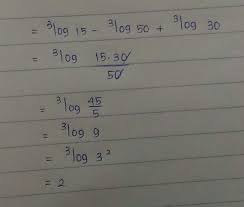 = ³log 15 - ³log 50 + ³log 30
= ³log 15·30/50
= ³log 45/5
= ³log 9
= ³log 3²
= 2